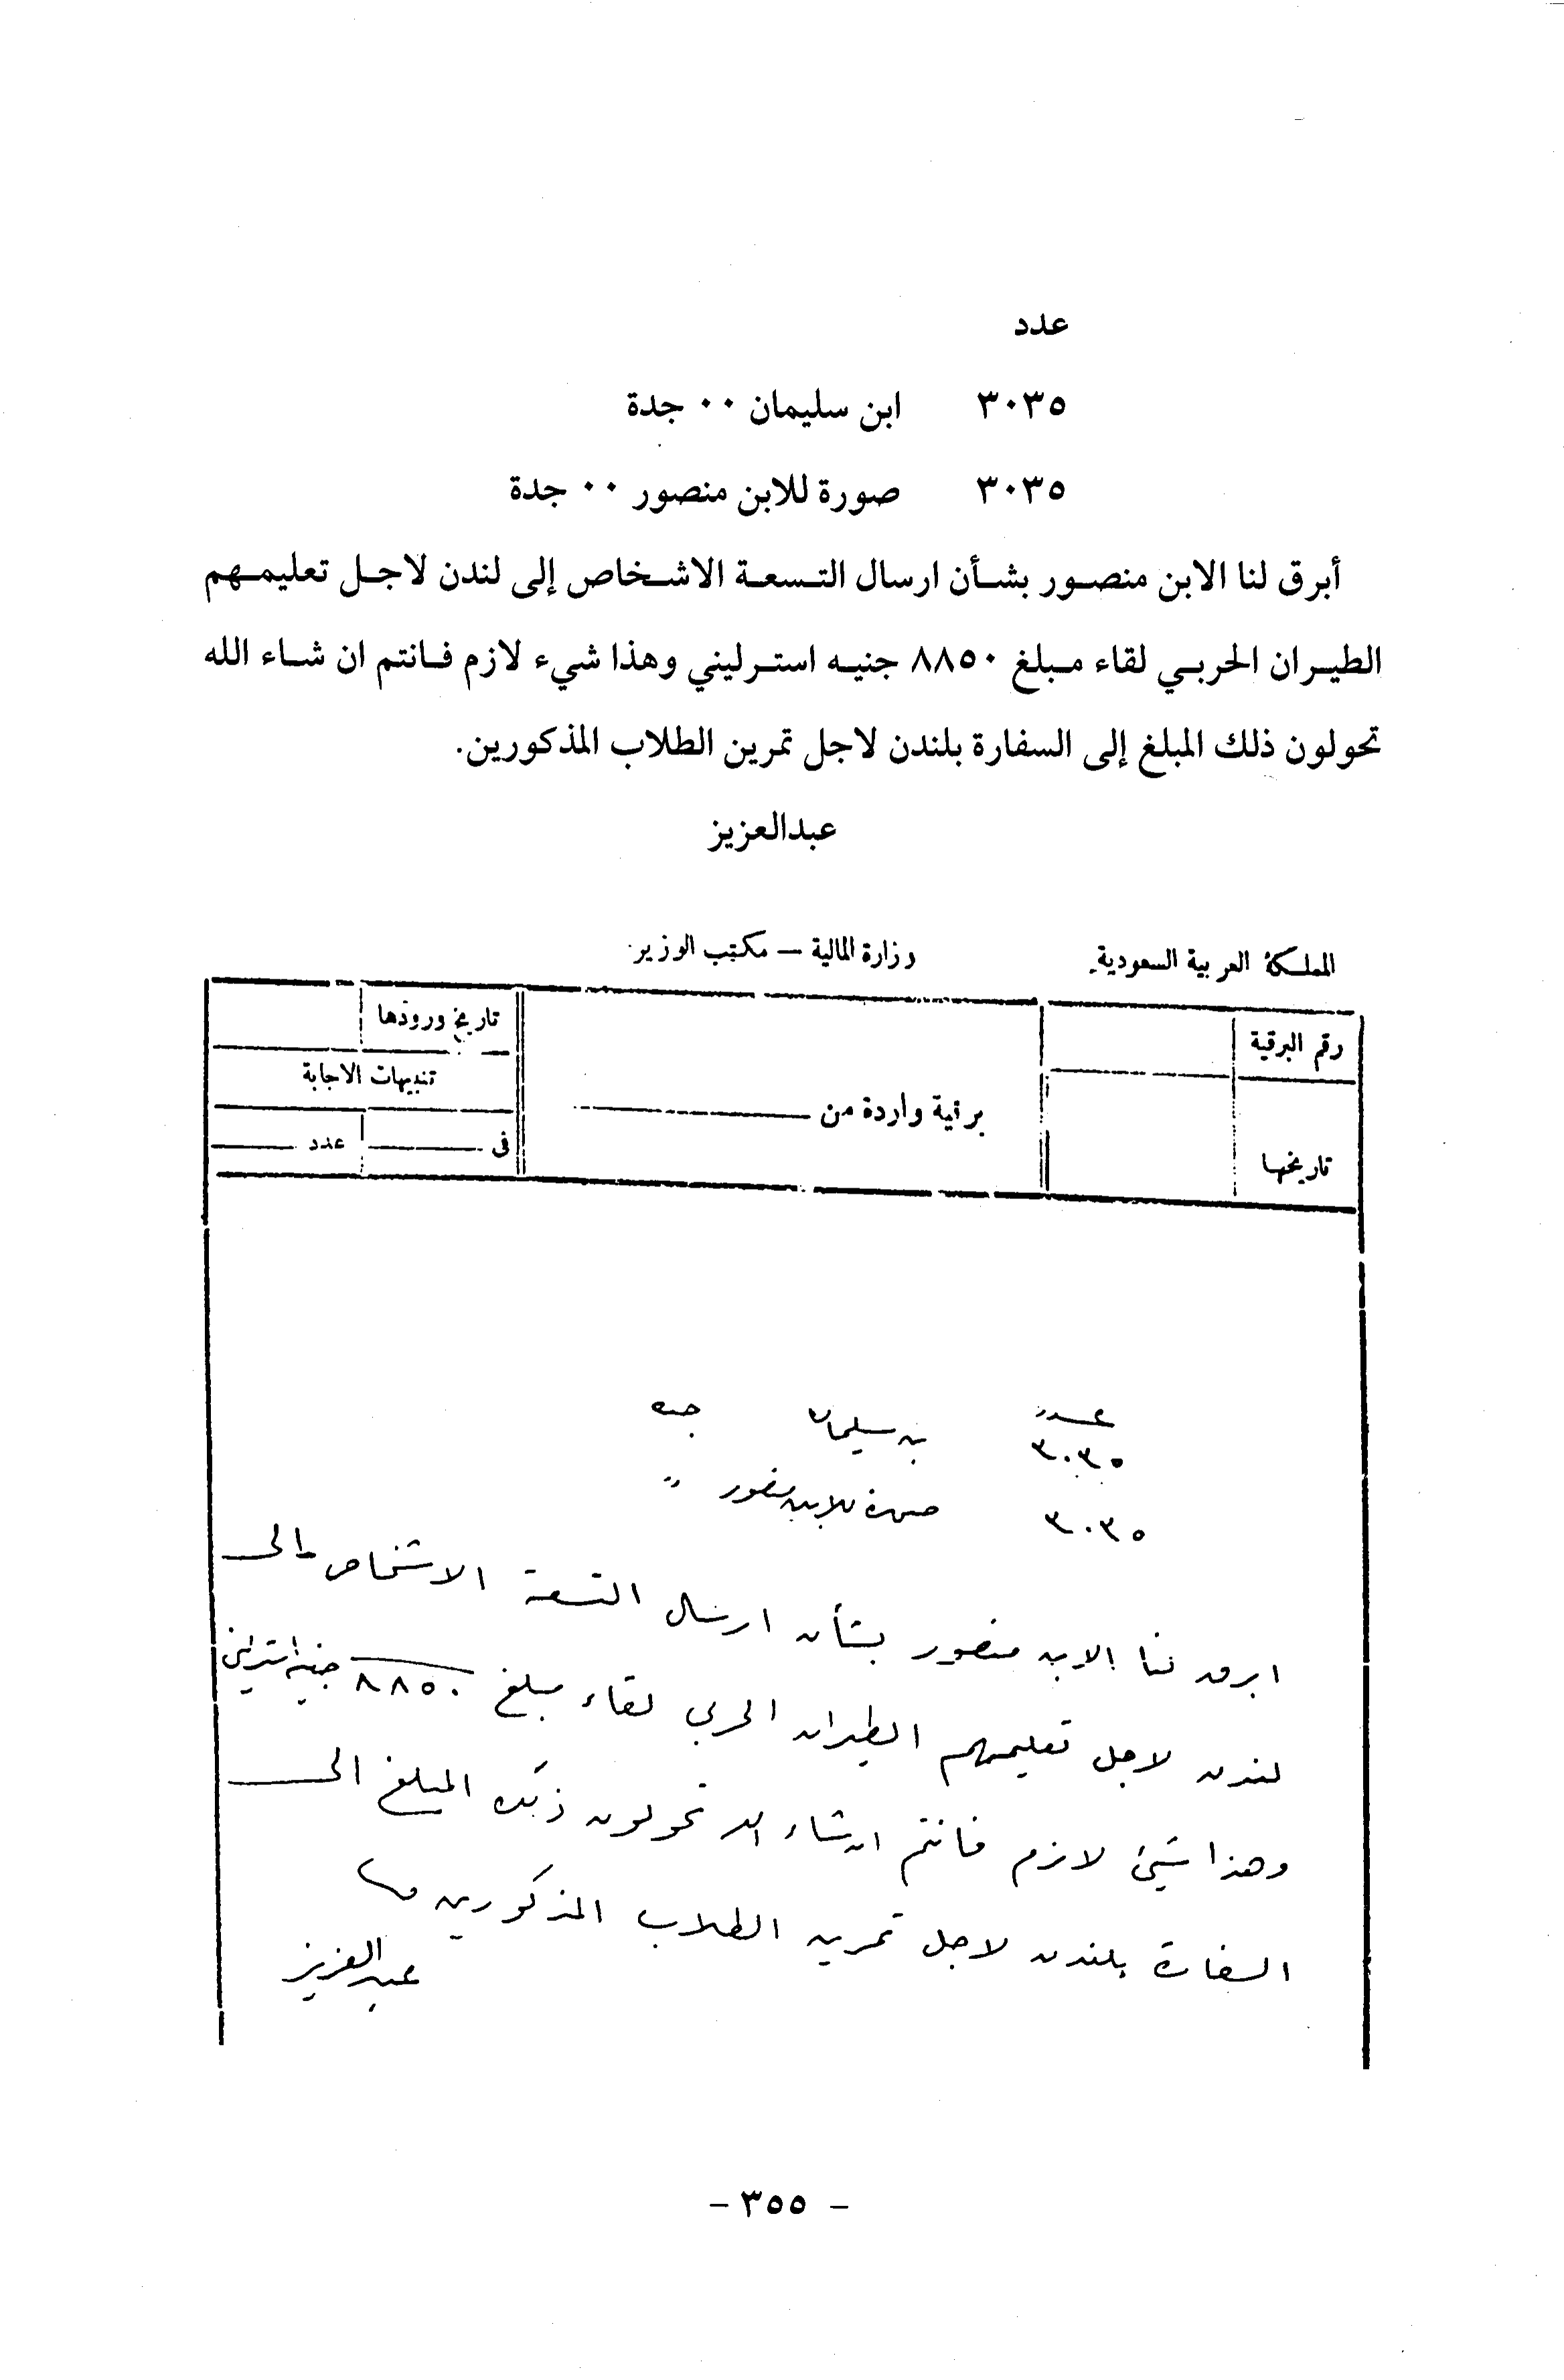 عدد
٣٠٣٥ ابن سليمان ٠٠ جدة
٣٠٣٥ صورة للابن منصور ٠٠ جدة
أبرق لنا الابن منصور بشأن ارسال التسعة الاشخاص إلى لندن لاجل تعليمهم
الطيران الحربي لقاء مبلغ ٨٨٥٠ جنيه استرليني وهذا شيء لازم فانتم ان شاء الله
تحولون ذلك المبلغ إلى السفارة بلندن لاجل تمرين الطلاب المذكورين.
عبدالعزيز
المملكة العربية السعودية. وزارة المالية – مكتب الوزير
رقم البرقية
تاريخها
برقية واردة من
تاريخ ورودها
تنبيهات الاجابة
فى عدد
عدد
٣٠٣٥ بن سليمان جده
٣٠٣٥ صورة للابن منصور "
ابرق لنا الابن منصور بشأن ارسال التسعة الاشخاص الى
لندن لاجل تعليمهم الطيران الحربي لقاء مبلغ ٨٨٥٠ جنيه استرليني
وهذا شيئ لازم فانتم ان شاء الله تحولون ذلك المبلغ الى
السفارة بلندن لاجل تمرين الطلاب المذكورين
عبدالعزيز
– ٣٥٥ –